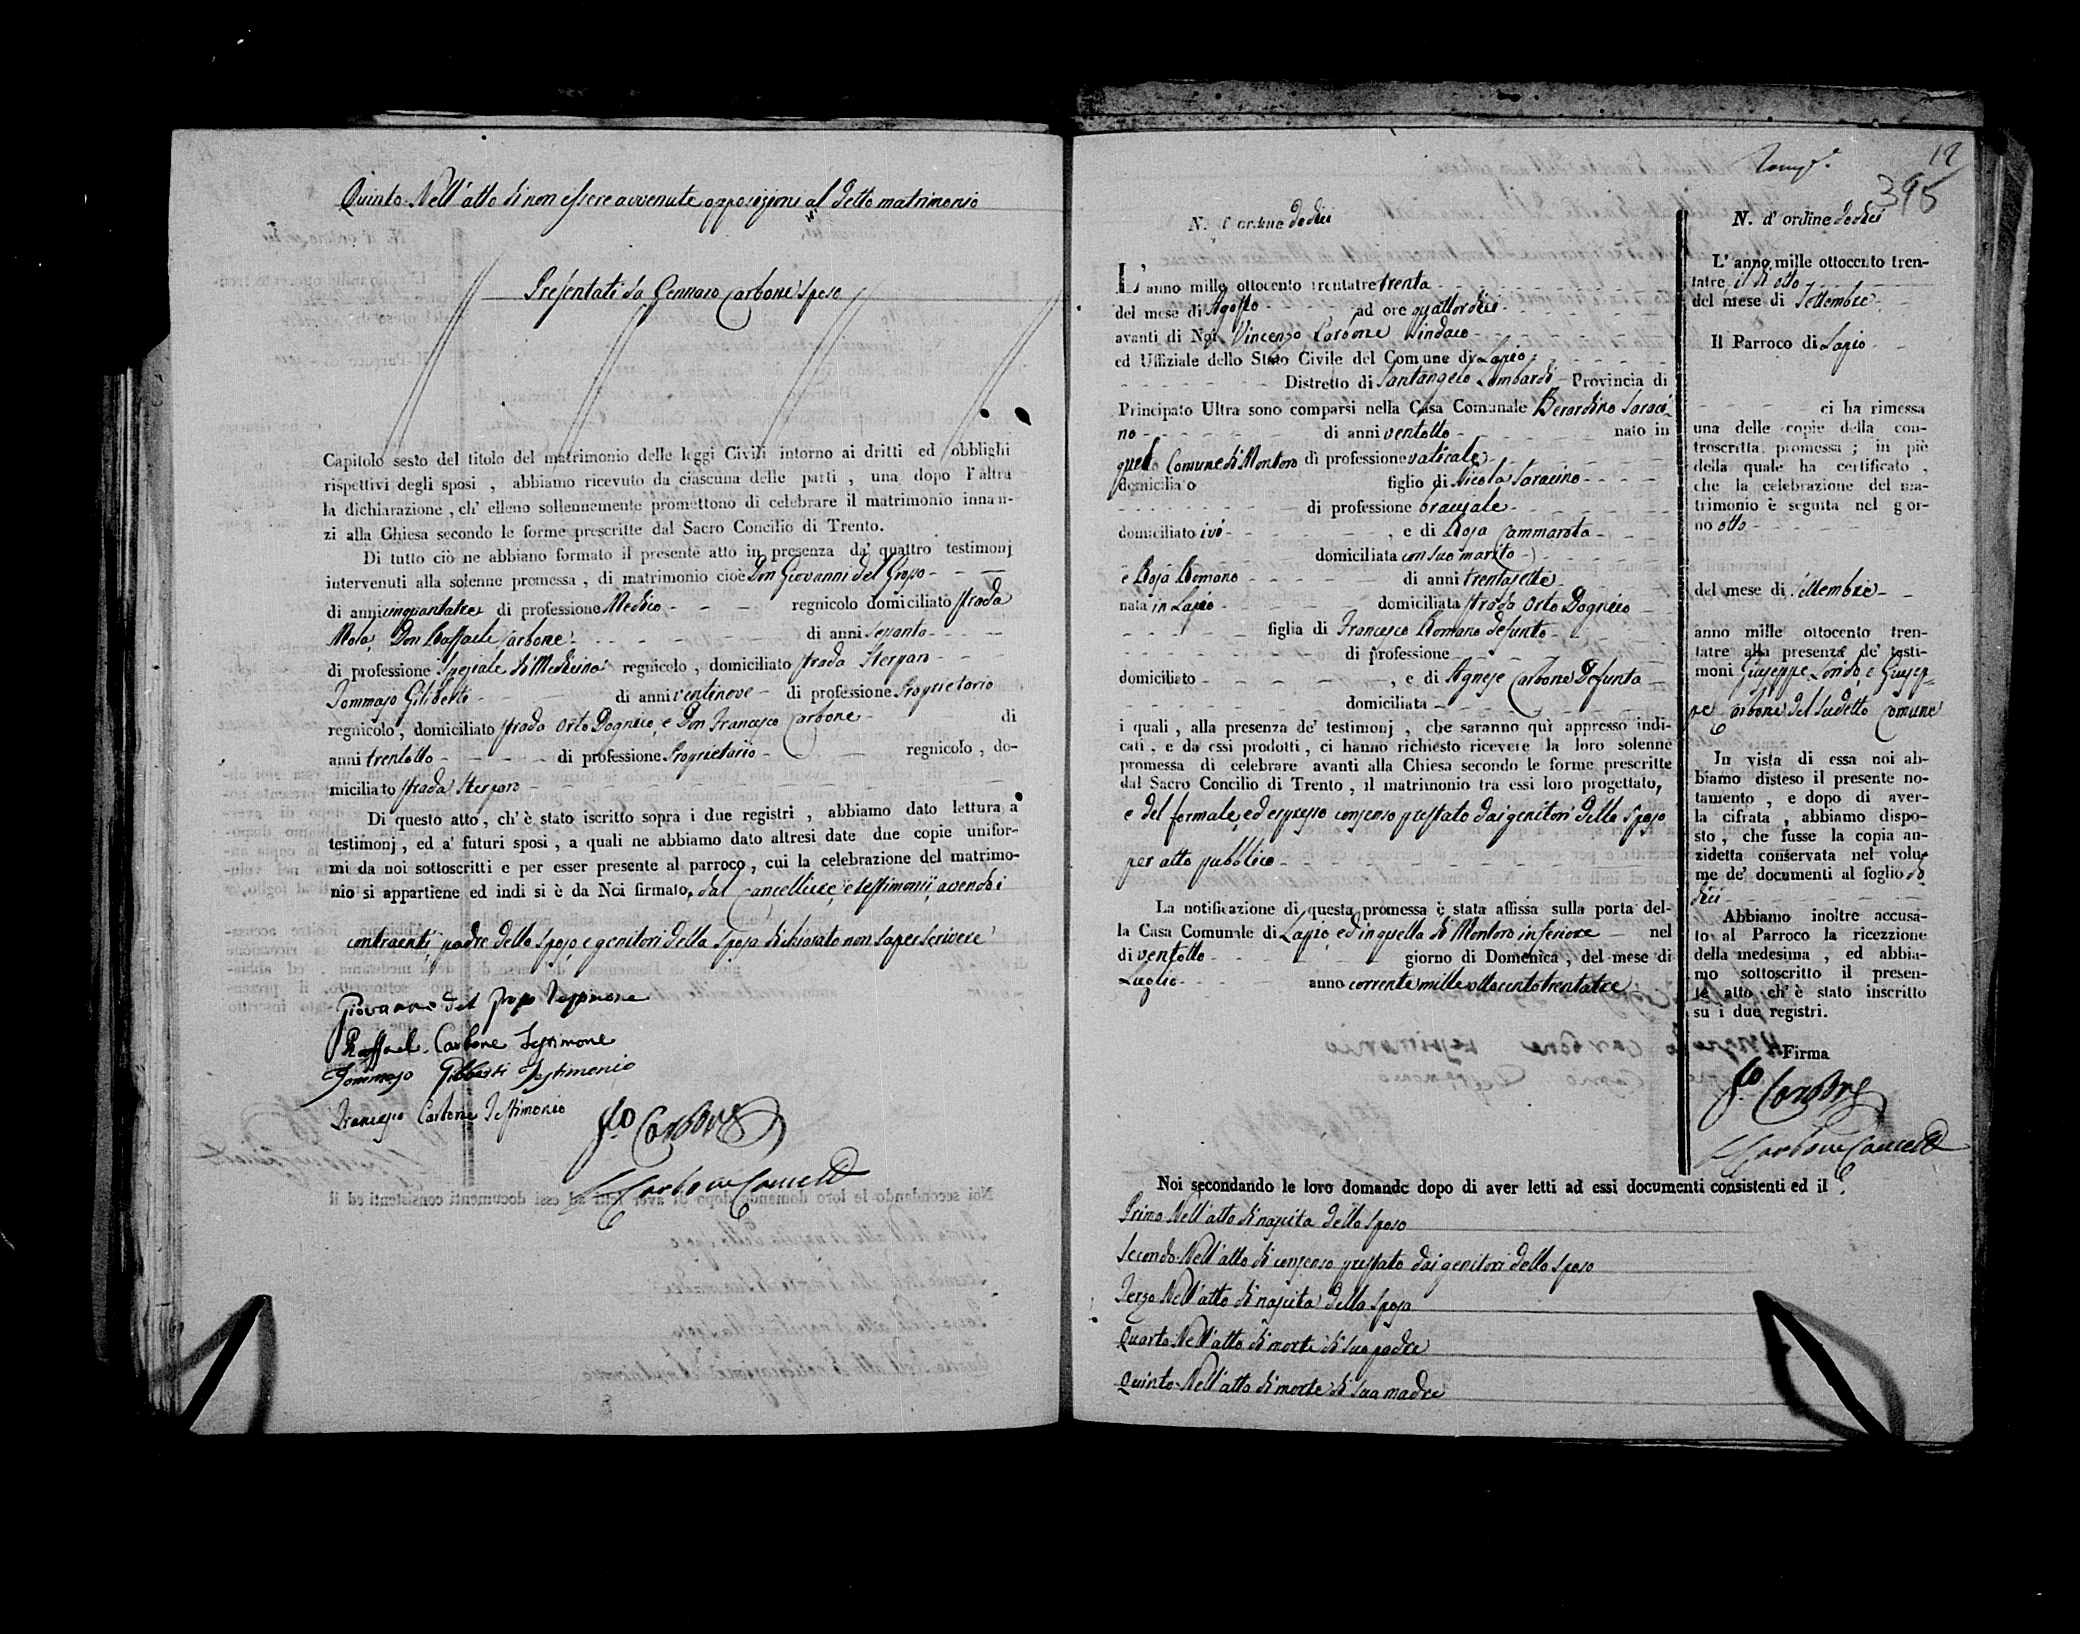 Quinto Nell'atto di non essere avvenute opposizioni al detto matrimonio
Presentati da Gennaro Carbone sposo
Capitolo sesto del titolo del matrimonio delle leggi Civili intorno ai dritti ed obblighi
rispettivi degli sposi , abbiamo ricevuto da ciascuna delle parti , una dopo l'altra
la dichiarazione , ch' elleno sollennemente promettono di celebrare il matrimonio innan-
zi alla Chiesa secondo le forme prescritte dal Sacro Concilio di Trento.
Di tutto ciò ne abbiano formato il presente atto in presenza da' quattro testimonj
intervenuti alla solenne promessa , di matrimonio cioè Don Giovanni del Grosso
di anni cinquantatre di professione Medico regnicolo domiciliato strada
Mola, Don Raffaele Carbone di anni sessanta
di professione Speziale di Medicina regnicolo , domiciliato strada Stergaro
Tommaso Giliberto di anni ventinove di professione Proprietario
regnicolo , domiciliato strada Orto Dognico, e Don Francesco Carbone di
anni trentotto di professione Proprietario regnicolo , do-
miciliato strada Stergaro
Di questo atto , ch' è stato iscritto sopra i due registri , abbiamo dato lettura a'
testimonj , ed a' futuri sposi , a quali ne abbiamo dato altresi date due copie unifor-
mi da noi sottoscritti e per esser presente al parroco , cui la celebrazione del matrimo-
nio si appartiene ed indi si è da Noi firmato, dal Cancelliere, e testimonii, avendo i
contraenti, padre dello sposo, e genitori della sposa dichiarato non saper scrivere
Giovanni del Grosso Testimone
Raffaele Carbone Testimone
Tommaso Giliberti Testimonio
Francesco Carbone Testimonio
Carbone
Carbone Cancell
12
395
N. d' ordine dodici
L' anno mille ottocento trentatre trenta
del mese di Agosto ad ore quattordici
avanti di Noi Vincenzo Carbone Sindaco
ed Uffiziale dello Stato Civile del Comune di Lapio
Distretto di Santangelo Lombardi Provincia di
Principato Ultra sono comparsi nella Casa Comunale Berardino Saraci-
no di anni ventotto nato in
quello Comune di Montoro di professione vaticale
domiciliato figlio di Nicola Saracino
di professione bracciale
domiciliato ivi , e di Rosa Cammarota
domiciliata con suo marito
e Rosa Romano di anni trentasette
nata in Lapio domiciliata strada Orto Dognico
figlia di Francesco Romano defunto
di professione
domiciliato , e di Agnese Carbone Defunta
domiciliata
i quali , alla presenza de' testimonj , che saranno qui appresso indi-
cati , e da essi prodotti , ci hanno richiesto ricevere la loro solenne
promessa di celebrare avanti alla Chiesa secondo le forme prescritte
dal Sacro Concilio di Trento , il matrimonio tra essi loro progettato,
e del formale, ed espresso consenso prestato dai genitori dello sposo
per atto pubblico
La notificazione di questa promessa è stata affissa sulla porta del-
la Casa Comunale di Lapio, ed in quella di Montoro inferiore nel
di ventotto giorno di Domenica , del mese di
Luglio anno corrente mille ottocento trentatre
N. d' ordine dodici
L' anno mille ottocento tren-
tatre il di otto
del mese di Settembre
Il Parroco di Lapio
ci ha rimessa
una delle copie della con-
troscritta promessa ; in piè
della quale ha certificato ,
che la celebrazione del ma-
trimonio è seguita nel gior-
no otto
del mese di Settembre
anno mille ottocento tren-
tatre alla presenza de' testi-
moni Giuseppe Lorido, e Giusep-
pe Carbone del sudetto Comune
In vista di essa noi ab-
biamo disteso il presente no-
tamento , e dopo di aver-
la cifrata , abbiamo dispo-
sto , che fusse la copia an-
zidetta conservata nel volu-
me de' documenti al foglio do
dici
Abbiamo inoltre accusa-
to al Parroco la ricezzione
della medesima , ed abbia-
mo sottoscritto il presen-
te atto ch' è stato inscritto
su i due registri.
Firma
Carbone
Carbone Cancell
Noi secondando le loro domande dopo di aver letti ad essi documenti consistenti ed il
Primo Nell'atto di nascita dello sposo
Secondo Nell'atto di consenso prestato dai genitori dello sposo
Terzo Nell'atto di nascita della sposa
Quarto Nell'atto di morte di suo padre
Quinto Nell'atto di morte di sua madre